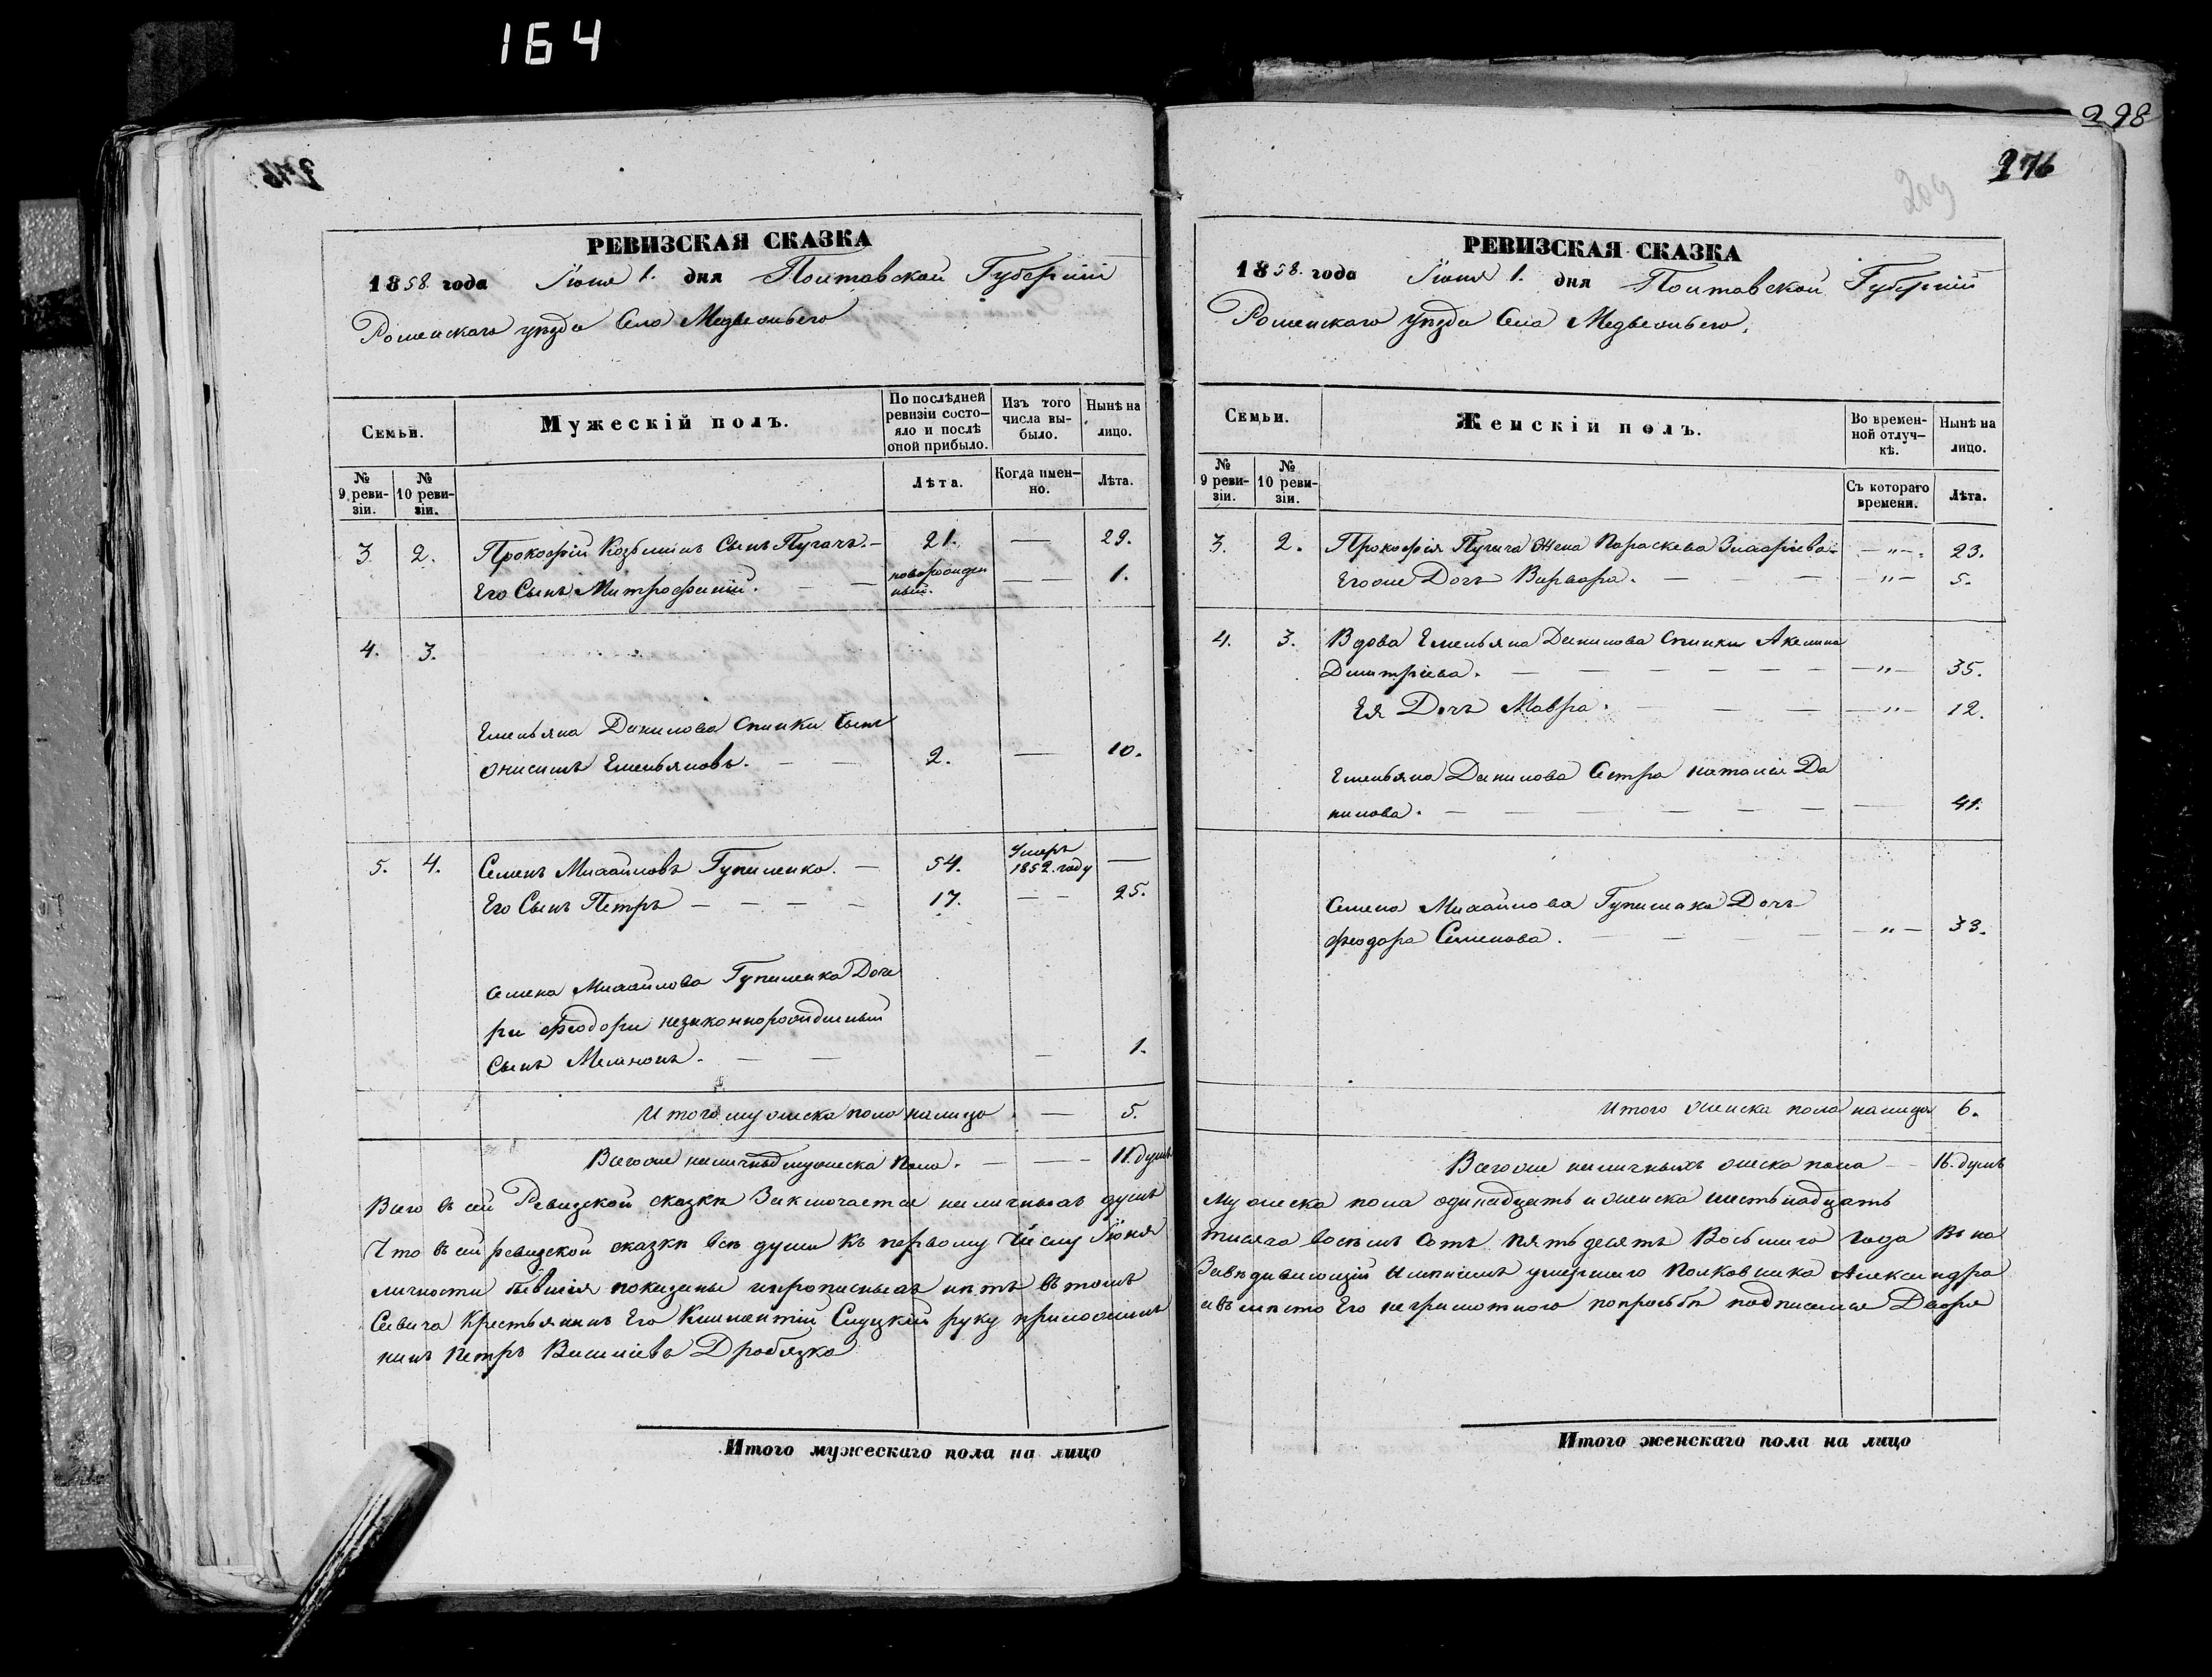 164
298
276
209
РЕВИЗСКАЯ СКАЗКА
1858. года Іюня 1. дня Полтавской Губерніи
Роменскаго уѣзда Села Медвежьего
Семьи.
Мужескій полъ.
По послѣдней ревизіи состо-
яло и послѣ оной прибыло.
Изъ того числа вы-
было.
Нынѣ на лицо.
№ 9 реви-
зіи.
№ 10 реви-
зіи.
Лѣта.
Когда имен-
но.
Лѣта.
3. 2. Прокофій Козьминъ Сынъ Пугачъ. — 21. — 29.
Его Сынъ Митрофаній. — — новорожден
ный. — — 1.
4. 3.
Емельяна Данилова Спинки Сынъ
Онисимъ Емельяновъ. — — 2. — 10.
5. 4. Семенъ Михайловъ Гупиленко. — 54. Умеръ
1852. году —
Его Сынъ Петръ — — — — 17. — — 25.
Семена Михайлова Гупиленка Доче
ри Феодори незаконнорожденный
Сынъ — — — 1.
Итого мужеска пола налицо — 5.
Всего же наличныхъ мужеска пола. — — — 11. душъ
Всего въ сей Ревизской сказки Заключается наличныхъ душъ
Что въ сей ревизской сказки всѣ души къ первому Числу Іюня
личности бывшія показаны и прописныхъ нѣтъ въ томъ
Севича Крестьянинъ Его Климентій Слуцкій руку приложилъ
нинъ Петръ Василіевъ Дробязко
Итого мужескаго пола на лицо
РЕВИЗСКАЯ СКАЗКА
1858. года Іюня 1. дня Полтавской Губерніи
Роменскаго Уѣзда Села Медвежьего.
Семьи.
Женскій полъ.
Во времен-
ной отлуч-
кѣ.
Нынѣ на лицо.
№ 9 реви-
зіи.
№ 10 реви-
зіи.
Съ котораго времени.
Лѣта.
3. 2. Прокофія Пугача Жена Параскева — „ — 23.
Егоже Дочь Варвара. — — — „ — 5.
4. 3. Вдова Емельяна Данилова Спинки Акелина
Дмитріева. — — — — — — — „ — 35.
Ея Дочь Мавра. — — — — „ — 12.
Емельяна Данилова Сестра Наталія Да
нилова. — — — — — — — 41.
Семена Михайлова Гупиленка Дочь
Феодора Семенова. — — — — — „ — 33.
Итого женска пола налицо 6.
Всегоже наличныхъ женска пола — — 16. душъ
мужеска пола одинадцать и женска шестьнадцать
тысяча восемь Сотъ пятьдесятъ Восьмаго года Въ на
Завѣдивающій Имѣніемъ умершаго Полковника Александра
а въ мѣсто Его неграмотнаго попросьбѣ подписался Дворя
Итого женскаго пола на лицо